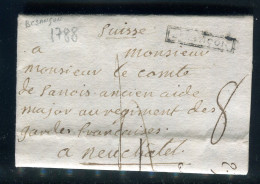 Besançon
1788
Suisse
a Monsieur
Monsieur le comte
de Sanois ancien aide
major au regiment des
gardes françoises.
a neuchatel
8